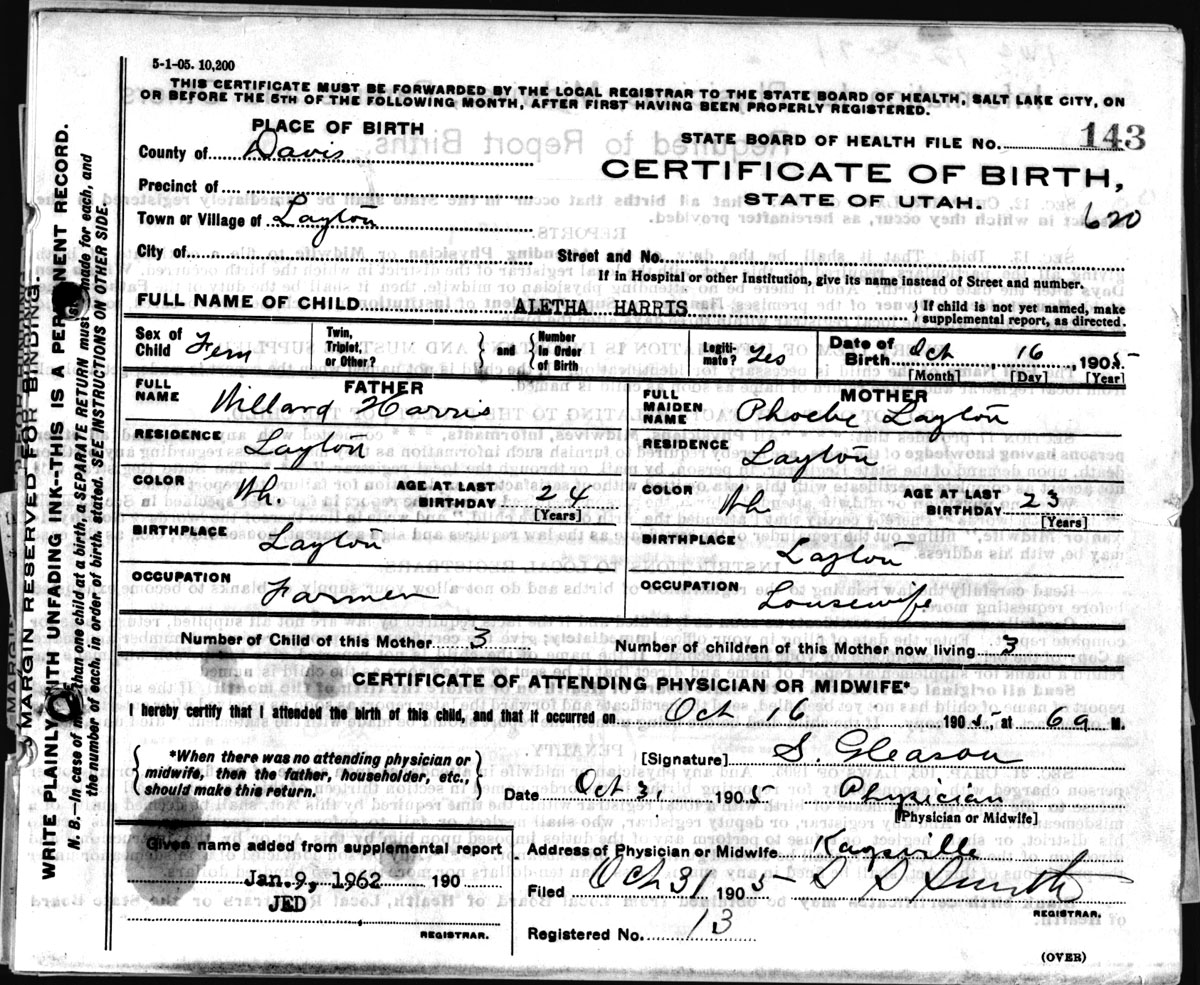 5-1-05. 10,200
THIS CERTIFICATE MUST BE FORWARDED BY THE LOCAL REGISTRAR TO THE STATE BOARD OF HEALTH, SALT LAKE CITY, ON
OR BEFORE THE 5TH OF THE FOLLOWING MONTH, AFTER FIRST HAVING BEEN PROPERLY REGISTERED.
PLACE OF BIRTH
STATE BOARD OF HEALTH FILE No. 143
County of Davis
CERTIFICATE OF BIRTH,
STATE OF UTAH.
620
Precinct of
Town or Village of Layton
City of
Street and No.
If in Hospital or other Institution, give its name instead of Street and number.
FULL NAME OF CHILD ALETHA HARRIS
} If child is not yet named, make
supplemental report, as directed.
Sex of Child Fem
Twin, Triplet, or Other?
{ and }
Number in Order of Birth
Legiti-mate? Yes
Date of Birth Oct 16 1905
[Month] [Day] [Year]
FATHER
FULL NAME Willard Harris
RESIDENCE Layton
COLOR Wh. AGE AT LAST BIRTHDAY 24
[Years]
BIRTHPLACE Layton
OCCUPATION Farmer
MOTHER
FULL MAIDEN NAME Phoebe Layton
RESIDENCE Layton
COLOR Wh AGE AT LAST BIRTHDAY 23
[Years]
BIRTHPLACE Layton
OCCUPATION Housewife
Number of Child of this Mother 3 Number of children of this Mother now living 3
CERTIFICATE OF ATTENDING PHYSICIAN OR MIDWIFE*
I hereby certify that I attended the birth of this child, and that it occurred on Oct 16 1905, at 6 a M.
{ *When there was no attending physician or
midwife, then the father, householder, etc.,
should make this return. }
[Signature] S. Gleason
Date Oct 31 1905 Physician
[Physician or Midwife]
Given name added from supplemental report
Jan. 9, 1962 190
JED
REGISTRAR.
Address of Physician or Midwife Kaysville
Filed Oct 31 1905 Smith
REGISTRAR.
Registered No. 13
(OVER)
MARGIN RESERVED FOR BINDING.
WRITE PLAINLY WITH UNFADING INK--THIS IS A PERMANENT RECORD.
N. B.--In case of more than one child at a birth, a SEPARATE RETURN must be made for each, and
the number of each, in order of birth, stated. SEE INSTRUCTIONS ON OTHER SIDE.